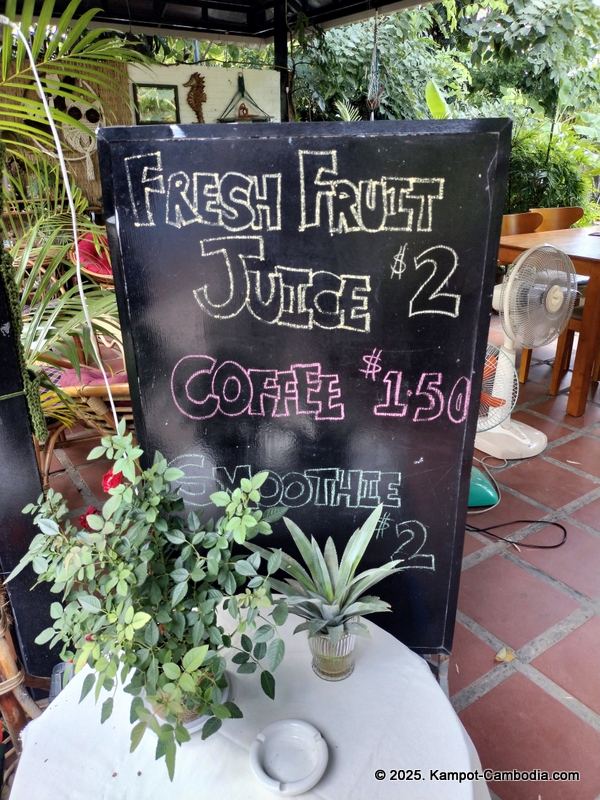 FRESH FRUIT
JUICE $2
COFFEE $1.50
SMOOTHIE
$2
© 2025. Kampot-Cambodia.com